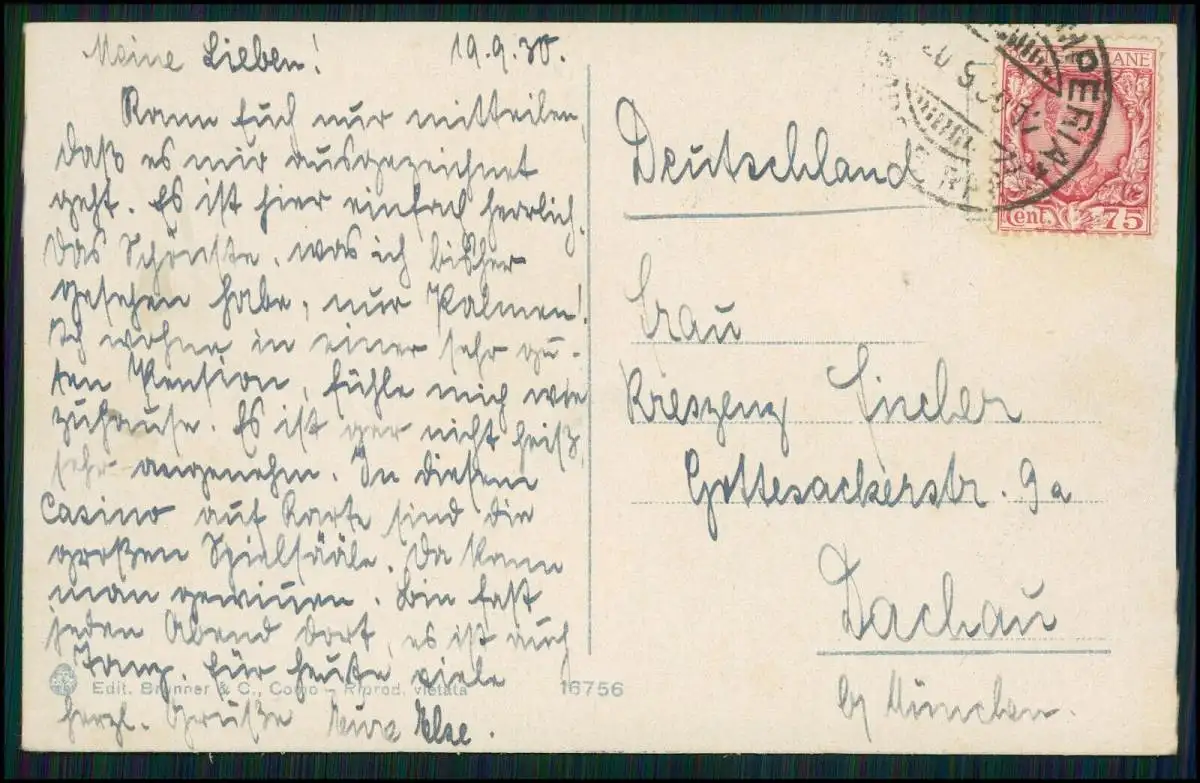 Meine Lieben! 19.9.30.
Kann Euch nur mitteilen,
daß es mir ausgezeichnet
geht. Es ist hier einfach herrlich.
Das Schönste, was ich bisher
gesehen habe, nur Palmen!
Ich wohne in einer sehr gu-
ten Pension, fühle mich wie
zuhause. Es ist gar nicht heiß,
sehr angenehm. In diesem
Casino auf Karte sind die
großen Spielsääle. Da kann
man gewinnen. Bin fast
jeden Abend dort, es ist auch
Tanz. Für heute viele
herzl. Grüße Eure Else.
Edit. Brunner & C., Como - Riprod. vietata 16756
Deutschland
Frau
Kreszenz
Gottesackerstr. 9a
Dachau
b/ München.
IMPERIA
LANE
Cent. 75